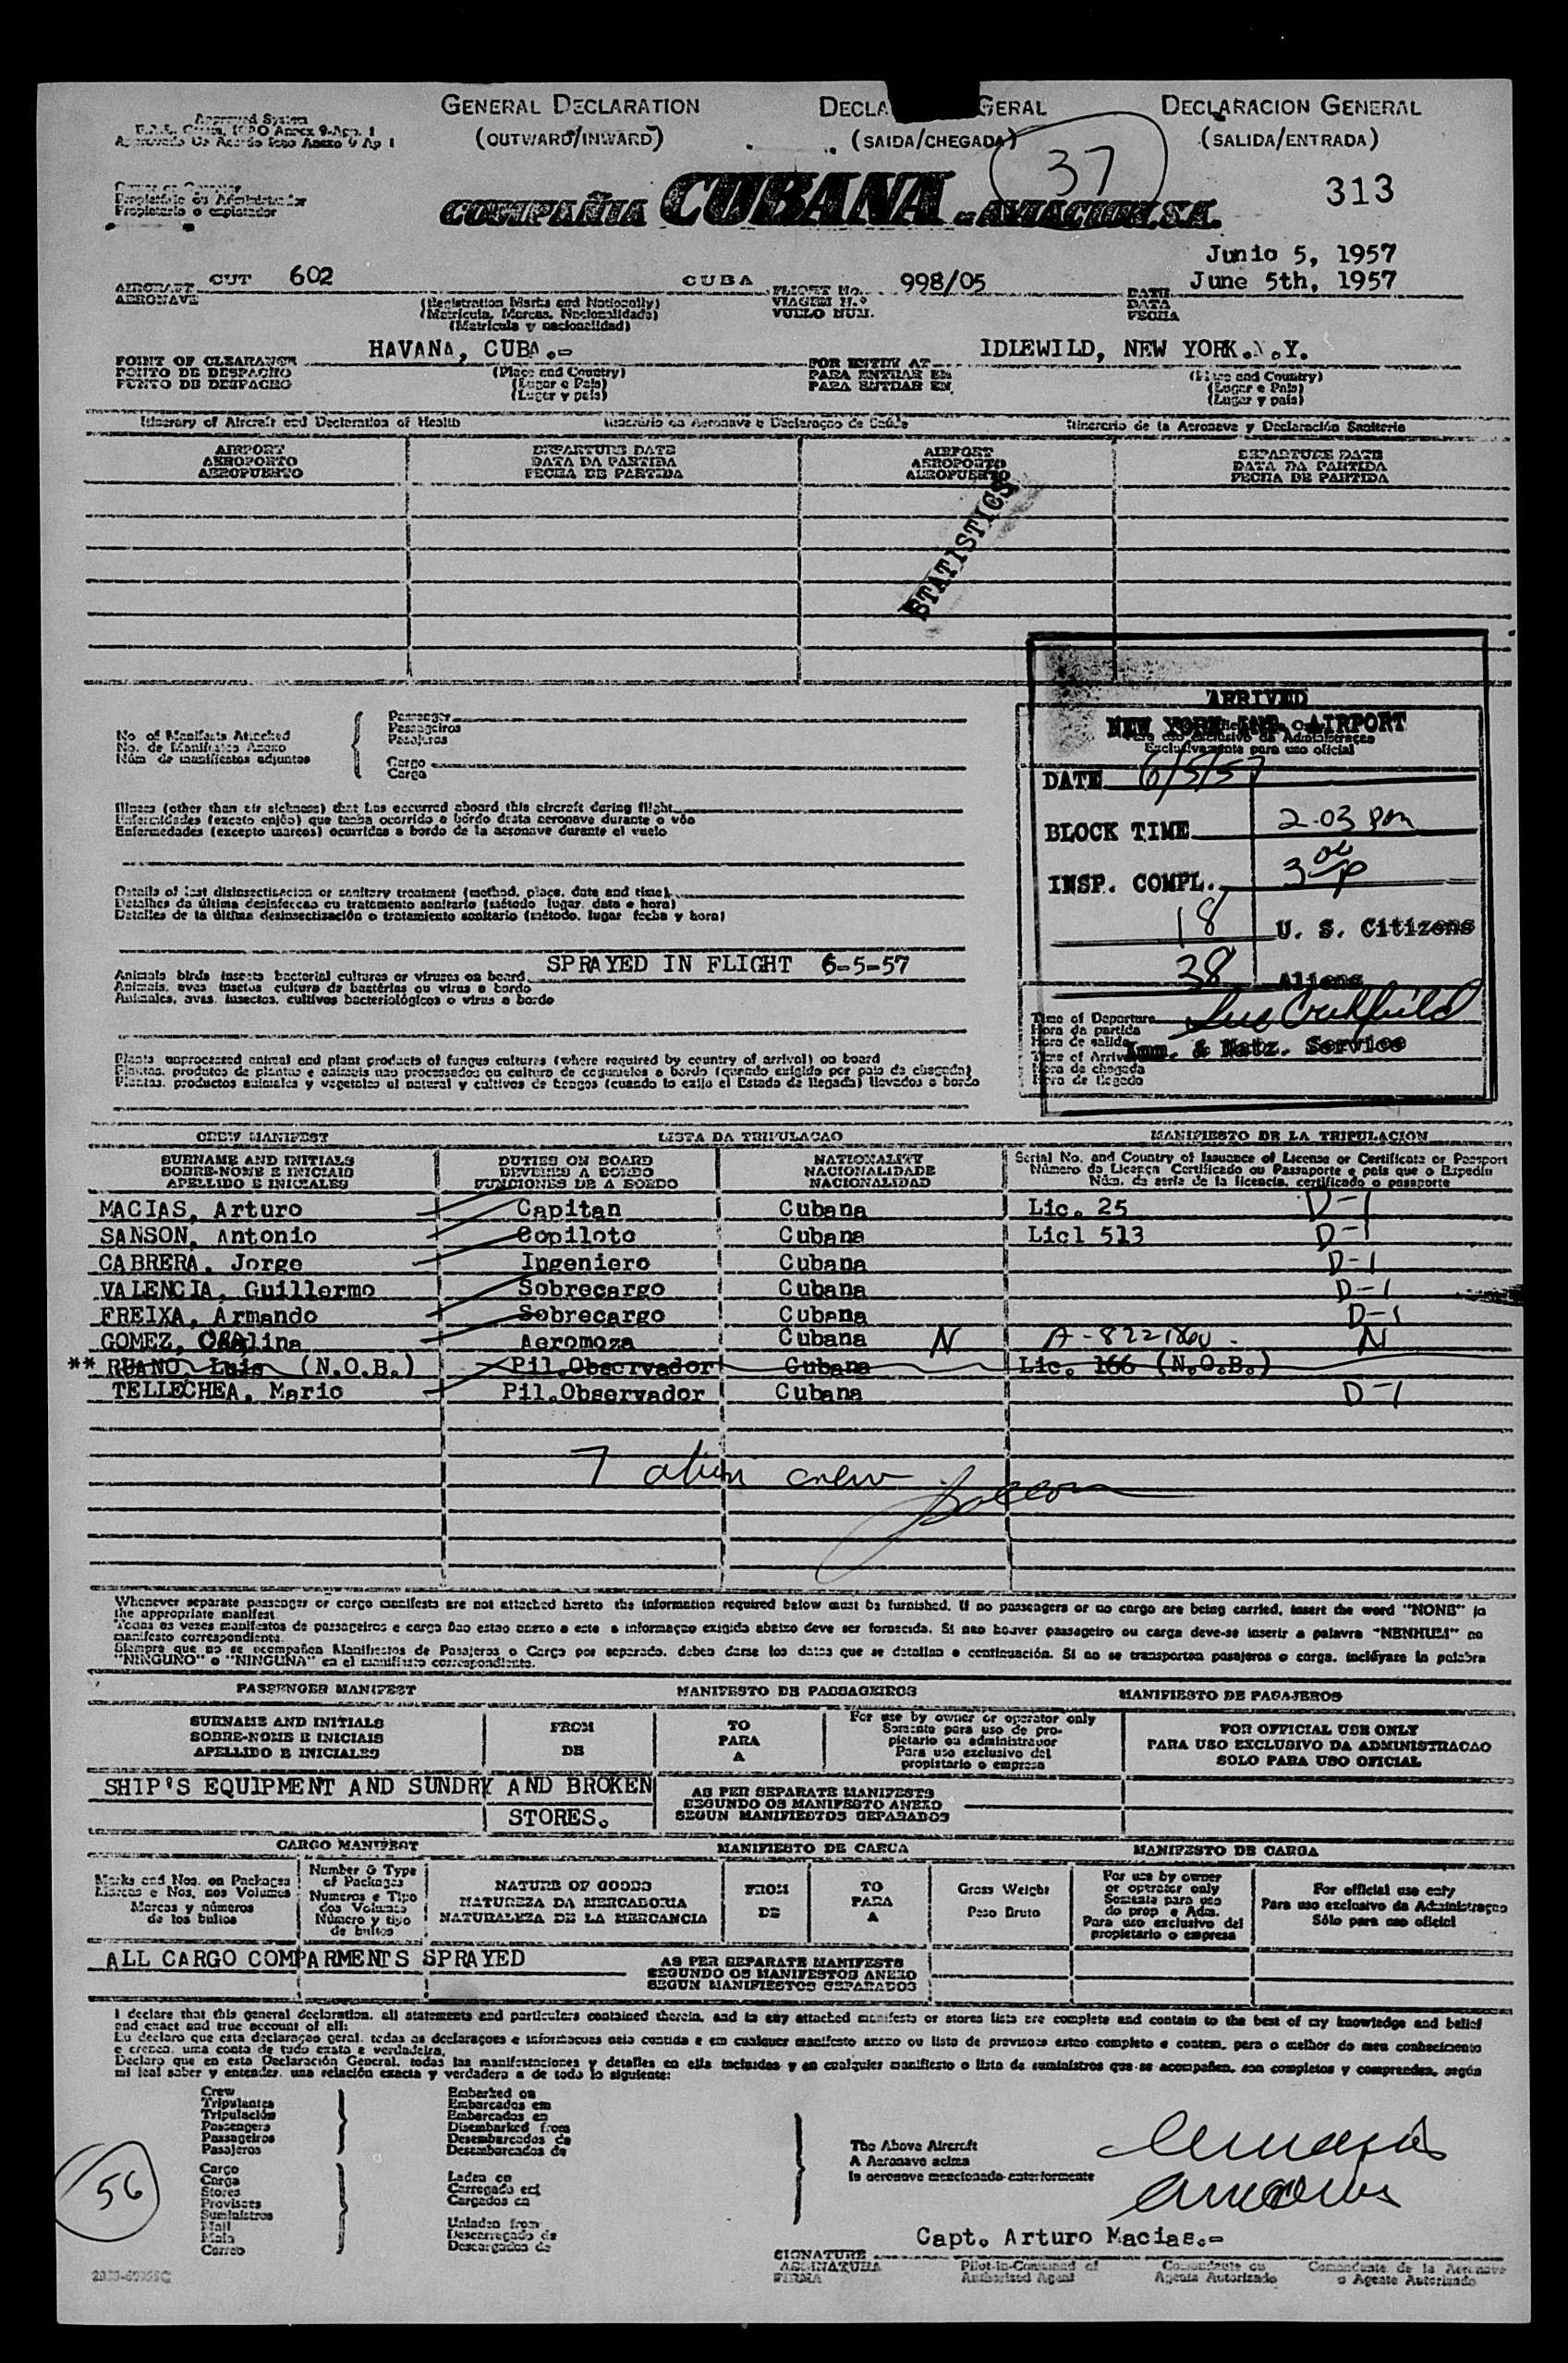 GENERAL DECLARATION
(OUTWARD/INWARD)
DECLA GERAL
(SAIDA/CHEGADA)
DECLARACION GENERAL
(SALIDA/ENTRADA)
Approved System
37
313
Propietario o explotador
COMPAÑIA CUBANA DE AVIACION, S.A.
Junio 5, 1957
June 5th, 1957
AIRCRAFT CUT 602 CUBA FLIGHT No. 998/05 DATE
AERONAVE VIAGEM N.º DATA
VUELO NUM. FECHA
(Registration Marks and Nationality)
(Matricula, Marcas, Nacionalidade)
(Matricula y nacionalidad)
POINT OF CLEARANCE HAVANA, CUBA.- FOR ENTRY AT IDLEWILD, NEW YORK. .Y.
PONTO DE DESPACHO (Place and Country) PARA ENTRAR EM (Place and Country)
PUNTO DE DESPACHO (Lugar e Pais) PARA ENTRAR EN (Lugar e Pais)
(Lugar y pais) (Lugar y pais)
Itinerary of Aircraft and Declaration of Health Itinerário da Aeronave e Declaraçao de Saúde Itinerario de la Aeronave y Declaración Sanitaria
AIRPORT DEPARTURE DATE AIRPORT DEPARTURE DATE
AEROPORTO DATA DA PARTIDA AEROPORTO DATA DA PARTIDA
AEROPUERTO FECHA DE PARTIDA AEROPUERTO FECHA DE PARTIDA
STATISTICS
ARRIVED
NEW YORK INT. AIRPORT
Exclusivamente para uso oficial
No. of Manifests Attached
No. de Manifestos Anexo
Núm. de manifiestos adjuntos
Passenger
Passageiros
Pasajeros
Cargo
Carga
DATE 6/5/57
BLOCK TIME 2.03 pm
INSP. COMPL. 3 00 p
18 U. S. Citizens
38 Aliens
Imm. & Natz. Service
Illness (other than air sickness) that has occurred aboard this aircraft during flight
Enfermidades (exceto enjôo) que tenha ocorrido a bordo desta aeronave durante o vôo
Enfermedades (excepto mareos) ocurridas a bordo de la aeronave durante el vuelo
Details of last disinsectisacion or sanitary treatment (method, place, date and time)
Detalhes da última desinfeccao ou tratamento sanitario (método lugar, data e hora)
Detalles de la última desinsectización o tratamiento sanitario (método, lugar fecha y hora)
SPRAYED IN FLIGHT 6-5-57
Animals birds insects bacterial cultures or viruses on board
Animais, aves insetos cultura de bactérias ou virus a bordo
Animales, aves, insectos, cultivos bacteriológicos o virus a bordo
Time of Departure
Hora da partida
Hora de salida
Time of Arrival
Hora da chegada
Hora de llegada
Plants unprocessed animal and plant products of fungus cultures (where required by country of arrival) on board
Plantas, productos animales y vegetales al natural y cultivos de hongos (cuando lo exija el Estado de llegada) llevados a bordo
CREW MANIFEST LISTA DA TRIPULACAO MANIFIESTO DE LA TRIPULACION
SURNAME AND INITIALS DUTIES ON BOARD NATIONALITY Serial No. and Country of Issuance of License or Certificate or Passport
SOBRE-NOME E INICIAIS DEVERES A BORDO NACIONALIDADE Número da Licença Certificado ou Passaporte e pais que o Expediu
APELLIDO E INICIALES FUNCIONES DE A BORDO NACIONALIDAD Núm. de serie de la licencia, certificado o pasaporte
MACIAS, Arturo Capitan Cubana Lic. 25 D-1
SANSON, Antonio Copiloto Cubana Licl 513 D-1
CABRERA, Jorge Ingeniero Cubana D-1
VALENCIA, Guillermo Sobrecargo Cubana D-1
FREIXA, Armando Sobrecargo Cubana D-1
GOMEZ, lina Aeromoza Cubana N N
** RUANO, Luis (N.O.B.) Pil.Observador Cubana Lic. 166 (N.O.B.)
TELLECHEA, Mario Pil.Observador Cubana D-1
7 alien crew
Whenever separate passenger or cargo manifests are not attached hereto the information required below must be furnished. If no passengers or no cargo are being carried, insert the word "NONE" in
the appropriate manifest.
Todas as vezes manifestos de passageiros e carga nao estao anexo a este a informaçao exigida abaixo deve ser fornecida. Si nao houver passageiro ou carga deve-se inserir a palavra "NENHUM" no
manifesto correspondente.
Siempre que no se acompañen Manifiestos de Pasajeros o Cargo por separado, deben darse los datos que se detallan a continuación. Si no se transportan pasajeros o carga, inclúyase la palabra
"NINGUNO" o "NINGUNA" en el manifiesto correspondiente.
PASSENGER MANIFEST MANIFESTO DE PASSAGEIROS MANIFIESTO DE PASAJEROS
SURNAME AND INITIALS FROM TO For use by owner or operator only FOR OFFICIAL USE ONLY
SOBRE-NOME E INICIAIS PARA Somente para uso de pro- PARA USO EXCLUSIVO DA ADMINISTRACAO
APELLIDO E INICIALES DE A pietario ou administrador SOLO PARA USO OFICIAL
Para uso exclusivo del
propietario o empresa
SHIP'S EQUIPMENT AND SUNDRY AND BROKEN
STORES.
AS PER SEPARATE MANIFESTS
SEGUNDO OS MANIFESTO ANEXO
SEGUN MANIFIESTOS SEPARADOS
CARGO MANIFEST MANIFIESTO DE CARGA MANIFESTO DE CARGA
Marks and Nos. on Packages Number & Type NATURE OF GOODS FROM TO Gross Weight For use by owner For official use only
Marcas e Nos. nos Volumes of Packages NATUREZA DA MERCADORIA DE PARA Peso Bruto or operator only Para uso exclusivo da Administraçao
Marcas y números Numeros e Tipo NATURALEZA DE LA MERCANCIA A Somente para uso Sólo para uso oficial
de los bultos dos Volumes do prop e Adm.
Número y tipo Para uso exclusivo del
de bultos propietario o empresa
ALL CARGO COMPARMENTS SPRAYED
AS PER SEPARATE MANIFESTS
SEGUNDO OS MANIFESTOS ANEXO
SEGUN MANIFIESTOS SEPARADOS
I declare that this general declaration, all statements and particulars contained therein, and in any attached manifests or stores lists are complete and contain to the best of my knowledge and belief
and exact and true account of all:
Eu declaro que esta declaraçao geral, todas as declaraçoes e informacoes nela contida e em cualquer manifesto anexo ou lista de provisoes estao completo e contem, para o melhor do meu conhecimento
e crenca, uma conta de tudo exata e verdadeira.
Declaro que en esta Declaración General, todas las manifestaciones y detalles en ella incluidos y en cualquier manifiesto o lista de suministros que se acompañen, son completos y comprenden, según
mi leal saber y entender, una relación exacta y verdadera a de todo lo siguiente:
Crew
Tripulantes
Tripulación
Passengers
Passageiros
Pasajeros
Embarked on
Embarcados em
Embarcados en
Disembarked from
Desembarcados de
Desembarcados de
Cargo
Carga
Stores
Provisoes
Suministros
Mail
Mala
Correo
Laden on
Carregado em
Cargados en
Unladen from
Descarregado de
Descargados de
The Above Aircraft
A Aeronave acima
la aeronave mencionada anteriormente
56
Capt. Arturo Macias.-
SIGNATURE Pilot-in-Command of Comandante ou Comandante de la Aeronave
ASSINATURA Authorized Agent Agente Autorizado o Agente Autorizado
FIRMA